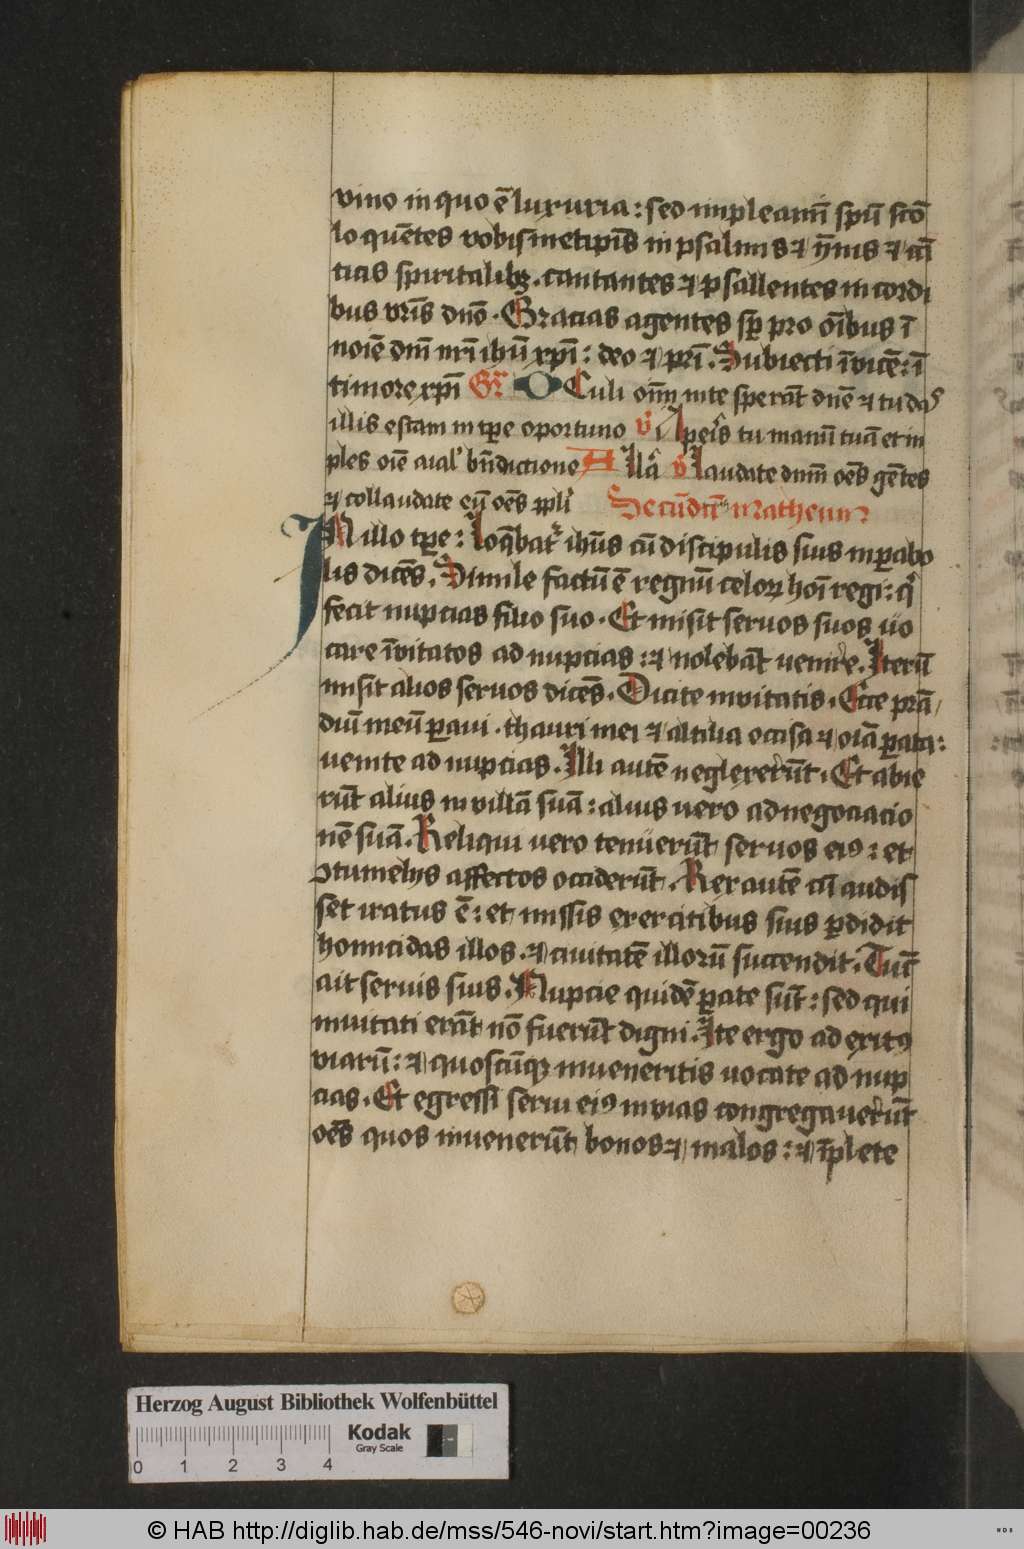 vino in quo ē luxuria : sed impleamī spū sctō
loquētes vobismetipīs in psalmis ⁊ ymīs ⁊ cā
ticis spiritalibꝫ . cantantes ⁊ psallentes in cordi
bus vrīs dnō . Gracias agentes sp̄ pro oībus ī
noīe dnī nrī ihū xpī : deo ⁊ prī . Subiecti īvicē : ī
timore xpī Gr̄ OCuli oīm in te sperāt dnē ⁊ tu das
illis escam in tꝑe oportuno v̄ Aperis tu manū tuā et in
ples oīe aīal bn̄dictione Allā v̄ Laudate dnm̄ oēs gētes
⁊ collaudate eū oēs ppli Secūdū Matheum
IN illo tꝑe : Loqbat ihūs cū discipulis suis in ꝑabo
lis dicēs . Simile factū ē regnū celoꝝ hoī regi : q
fecit nupcias filio suo . Et misit seruos suos uo
care īvitatos ad nupcias : ⁊ nolebāt uenire . Iterū
misit alios seruos dicēs . Dicite invitatis . Ecce prā
diū meū ꝑaui . thauri mei ⁊ altilia occisa ⁊ oīa ꝑata :
uenite ad nupcias . Illi autē neglexerūt . Et abie
rūt alius in villā suā : alius uero ad negociacio
nē suā . Reliqui uero tenuerūt seruos eiꝰ : et
ꝯtumelijs affectos occiderūt . Rex autē cū audis
set iratus ē : et missis exercitibus suis ꝑdidit
homicidas illos . ⁊ ciuitatē illorū succendit . Tūc
ait seruis suis . Nupcie quidē ꝑate sūt : sed qui
inuitati erāt nō fuerūt digni . Ite ergo ad exitꝰ
viarū : ⁊ quoscūqꝫ inueneritis uocate ad nup
cias . Et egressi serui eiꝰ in vias congregauerūt
oēs quos inuenerūt bonos ⁊ malos : ⁊ īplete
Herzog August Bibliothek Wolfenbüttel
Kodak
Gray Scale
0 1 2 3 4
© HAB http://diglib.hab.de/mss/546-novi/start.htm?image=00236